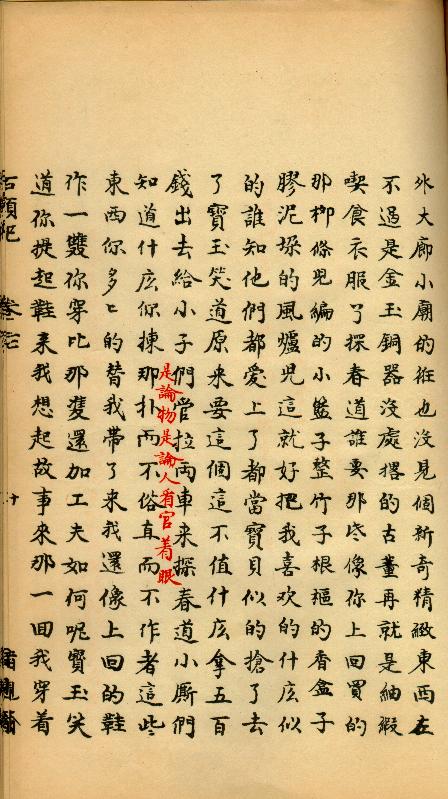 外大廊小廟的徃也沒見個新奇精緻東西左
不過是金玉銅器沒處撂的古董再就是紬緞
喫食衣服了探春道誰要那些像你上回買的
那柳條児編的小籃子整竹子根樞的香盒子
膠泥垜的風爐児這就好把我喜欢的什庅似
的誰知他們都愛上了都當寳貝似的搶了去
了寳玉笑道原来要這個這不值什庅拿五百
錢出去給小子們管拉両車来探春道小厮們
知道什庅你揀那朴而不俗直而不作者這些
是論物是論人看官着眼
東西你多〻的替我帶了来我還像上回的鞋
作一雙你穿比那雙還加工夫如何呢寳玉笑
道你提起鞋来我想起故事来那一囬我穿着
石頭記 卷